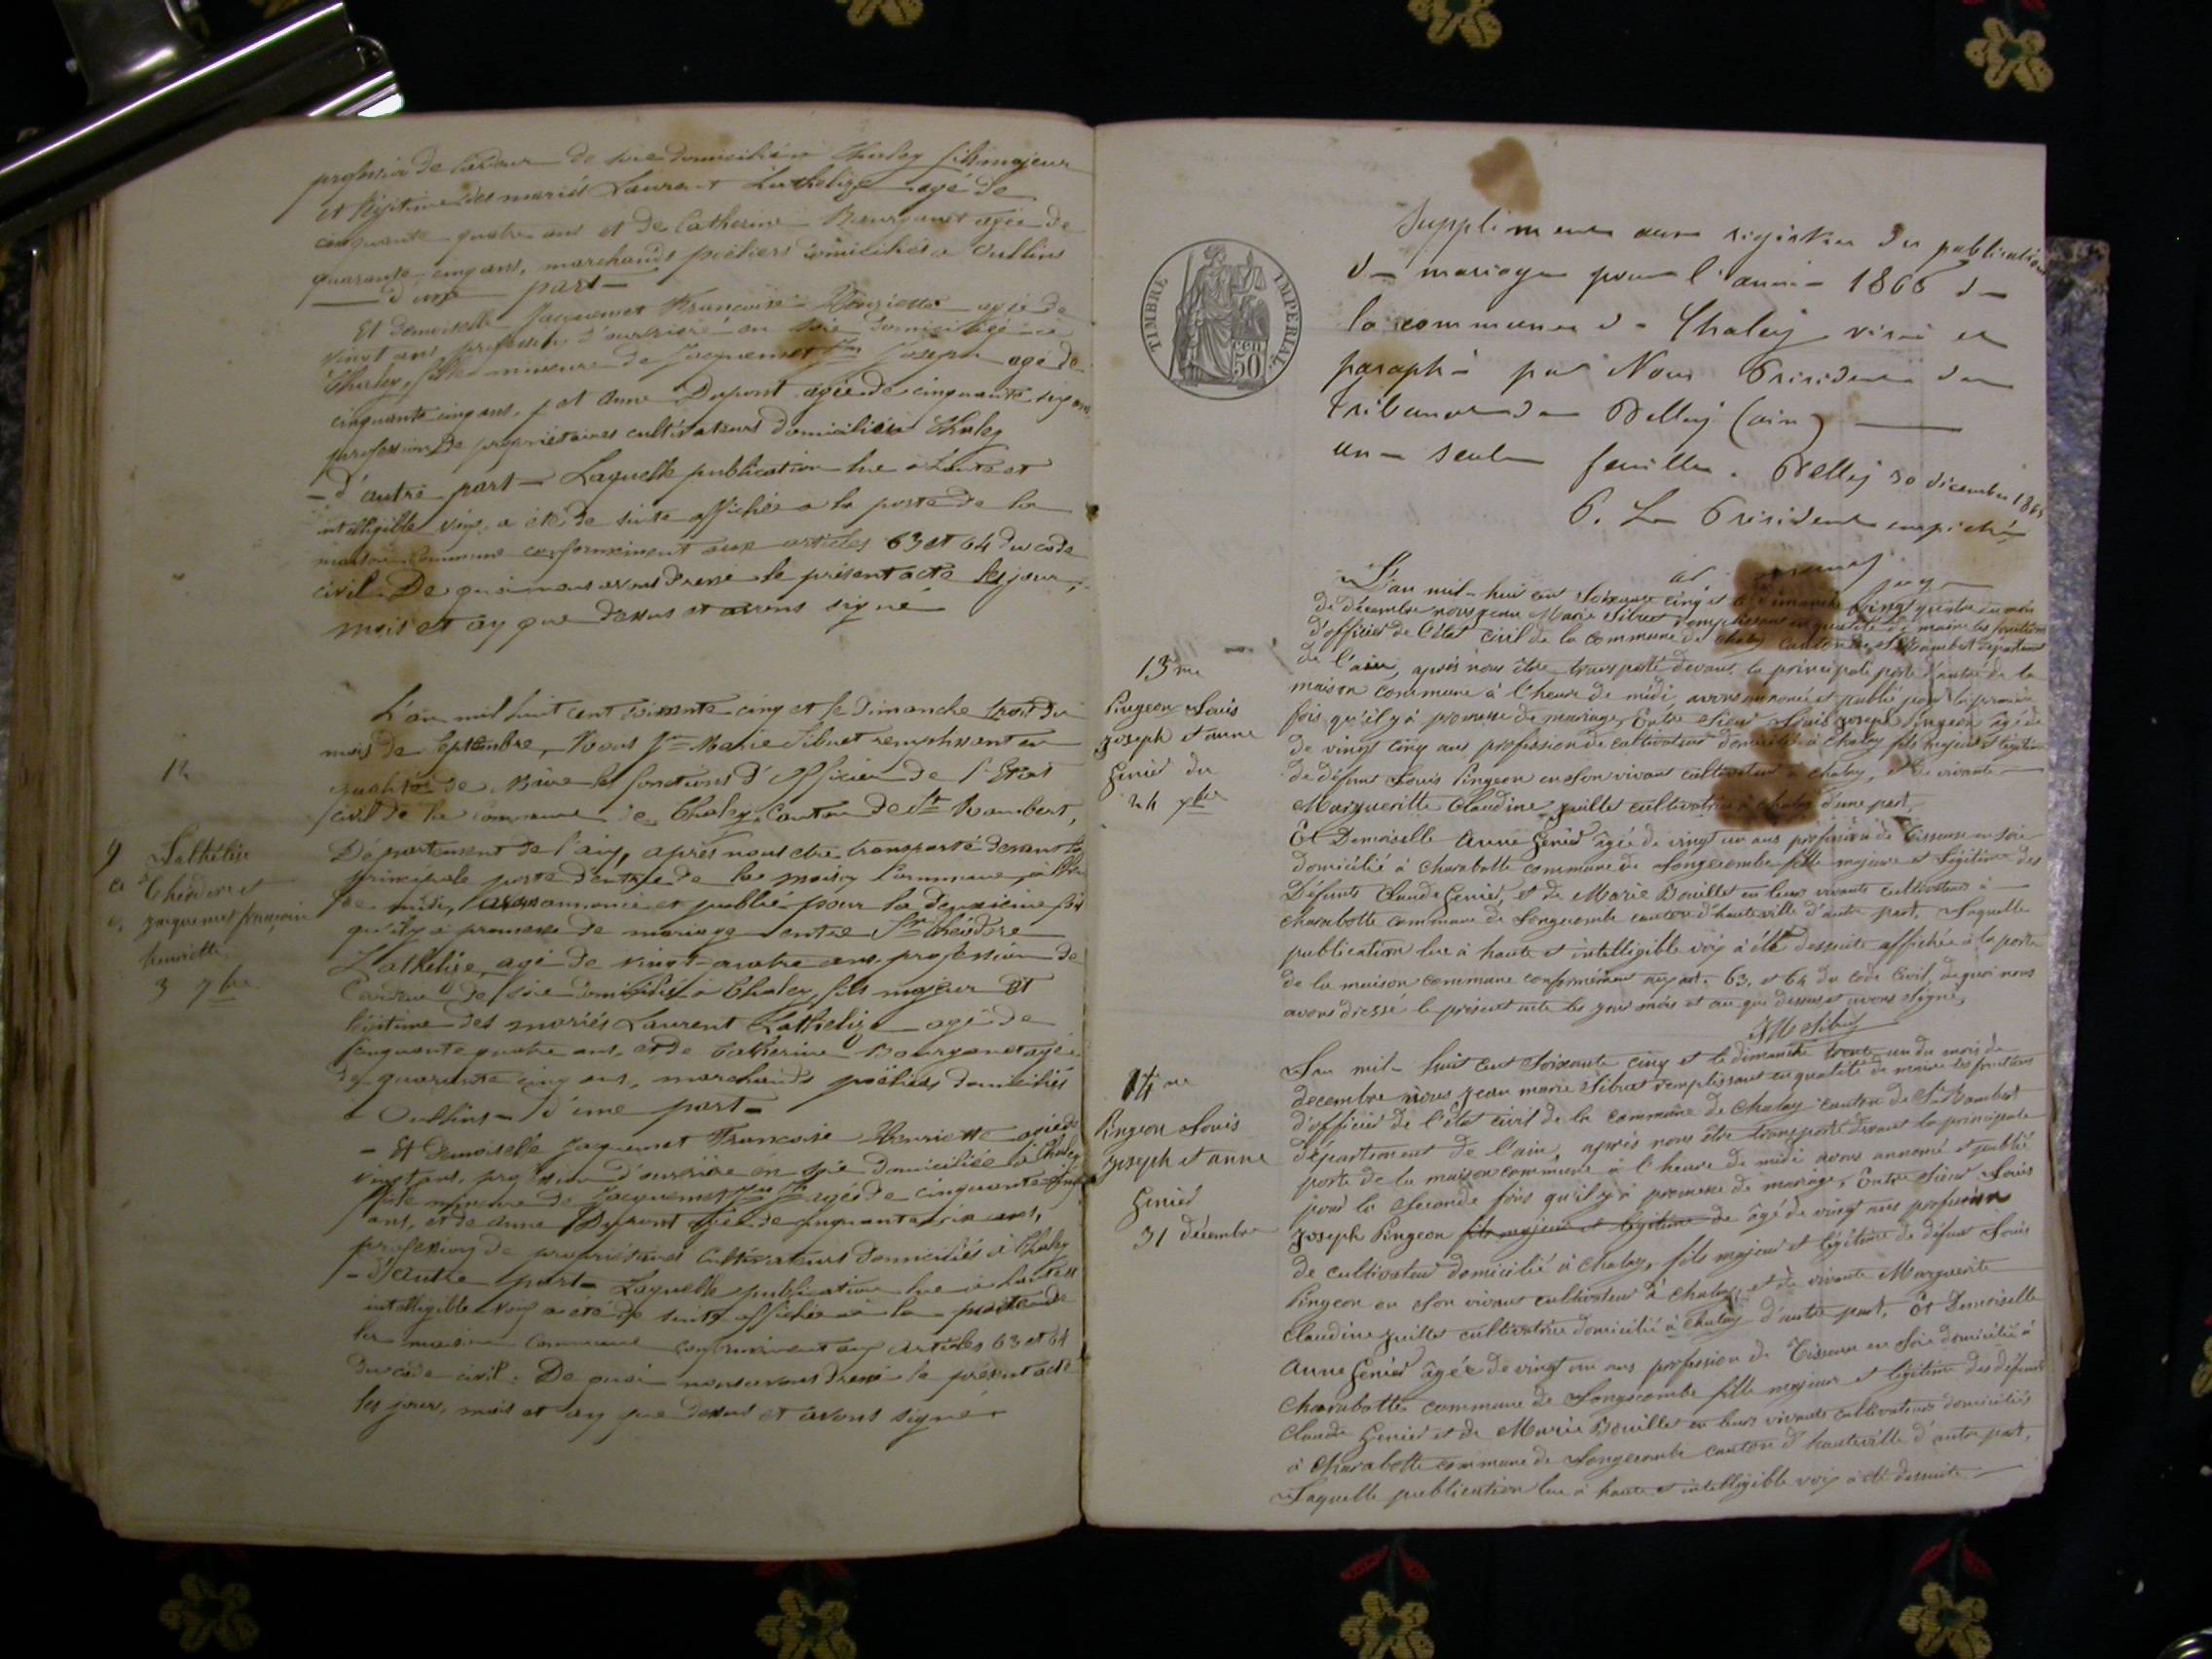 profession de Cardeur de soie domicilié à Chaley fils majeur
et légitime des mariés Laurent Lathelize agé de
cinquante quatre ans et de Catherine Bourganet agée de
quarante cinq ans, marchands poëliers domiciliés à Oullins
d'une part
Et demoiselle Jacquemet Françoise Henriette agée de
vingt ans profession d'ouvrière en soie domiciliée à
Chaley, fille mineure de Jacquemet Jn Joseph agé de
cinquante cinq ans, et Anne Dupont agée de cinquante six ans
profession de propriétaires cultivateurs domiciliés à Chaley
- d'autre part - Laquelle publication lue à haute et
intelligible voix, a été de suite affichée à la porte de la
maison Commune conformément aux articles 63 et 64 du code
civil. De quoi nous avons dressé le présent acte les jour,
mois et an que dessus et avons signé
L'an mil huit cent soixante cinq et le Dimanche trois du
mois de Septembre, Nous Jn Marie Sibuet remplissant en
qualité de Maire les fonctions d'Officier de l'Etat
civil de la commune de Chaley, Canton de St Rambert,
Département de l'ain, après nous être transporté devant la
principale porte d'entrée de la maison Commune, à l'heure
de midi, avons annoncé et publié pour la deuxième fois
qu'il y a promesse de mariage entre Sr Théodore
Lathelize, agé de vingt-quatre ans profession de
Cardeur de soie domicilié à Chaley, fils majeur et
légitime des mariés Laurent Lathelize agé de
cinquante quatre ans, et de Catherine Bourganet agée
de quarante cinq ans, marchands poëliers domiciliés
à Oullins - d'une part -
- Et demoiselle Jaquemet Françoise Henriette agée de
vingt ans, profession d'ouvrière en soie domiciliée à Chaley
fille mineure de Jacquemet Jn Jh agé de cinquante cinq
ans, et de Anne Dupont agée de cinquante six ans,
professions de propriétaires Cultivateurs domiciliés à Chaley
- d'autre part - Laquelle publication lue à haute et
intelligible voix a été de suite affichée à la porte de
la maison Commune conformément aux articles 63 et 64
du code civil. De quoi nous avons dressé le présent acte
les jour, mois et an que dessus et avons signé
12
Lathelize
Théodore et
Jacquemet françoise
henriette
3 7bre
TIMBRE IMPERIAL
50
Supplément aux registres des publications
de mariage pour l'année 1866 de
la commune de Chaley visé et
paraphé par Nous Président du
tribunal de Belley (ain)
une seule feuille. Belley 30 décembre 1865
P. Le Président empêché
13me
Pingeon Louis
Joseph et anne
Genier du
24 xbre
L'an mil-huit cent soixante cinq et le dimanche vingt quatre du mois
de décembre nous Jean Marie Sibuet remplissant en qualité de maire les fonctions
d'officier de l'état civil de la commune de Chaley Canton de St Rambert département
de l'ain, après nous être transporté devant la principale porte d'entrée de la
maison commune à l'heure de midi, avons annoncé et publié pour la première
fois qu'il y à promesse de mariage, Entre Sieur Louis Joseph Pingeon âgé de
de vingt cinq ans profession de cultivateur domicilié à Chaley fils majeur et légitime
de défunt Louis Pingeon en son vivant cultivateur à Chaley, et de vivante
Margueritte Claudine Juillet cultivatrice à Chaley d'une part,
Et Demoiselle Anne Genier âgée de vingt un ans profession de Tisseuse en soie
domicilié à charabotte commune de Longecombe fille majeure et légitime des
Défunts Claude Genier, et de Marie Bouillet en leur vivants cultivateurs à
charabotte commune de Longecombe canton d'hauteville d'autre part, Laquelle
publication lue à haute et intelligible voix à été dessuite affichée à la porte
de la maison commune conformément aux art. 63, et 64 du code civil, de quoi nous
avons dressé le présent acte les jour mois et an que dessus et avons signé,
JM Sibuet
14me
Pingeon Louis
Joseph et anne
Genier
31 décembre
L'an mil-huit cent soixante cinq et le dimanche trente un du mois de
decembre nous Jean marie Sibuet remplissant en qualité de maire les fonctions
d'officier de l'état civil de la commune de Chaley canton de St Rambert
département de l'ain, après nous être transporté devant la principale
porte de la maison commune à l'heure de midi avons annoncé et publié
pour la seconde fois qu'il y à promesse de mariage, Entre Sieur Louis
Joseph Pingeon fils majeur et légitime de âgé de vingt ans profession
de cultivateur domicilié à Chaley, fils majeur et légitime de défunt Louis
Pingeon en son vivant cultivateur à Chaley, et de vivante Marguerite
Claudine Juillet cultivatrice domicilié à Chaley d'autre part, Et Demoiselle
Anne Genier âgée de vingt un ans profession de Tisseuse en soie domicilié à
Charabotte commune de Longecombe fille majeure et légitime des défunts
Claude Genier et de Marie Bouillet en leurs vivants cultivateurs domiciliés
à Charabotte commune de Longecombe canton d'hauteville d'autre part,
Laquelle publication lue à haute et intelligible voix à été dessuite